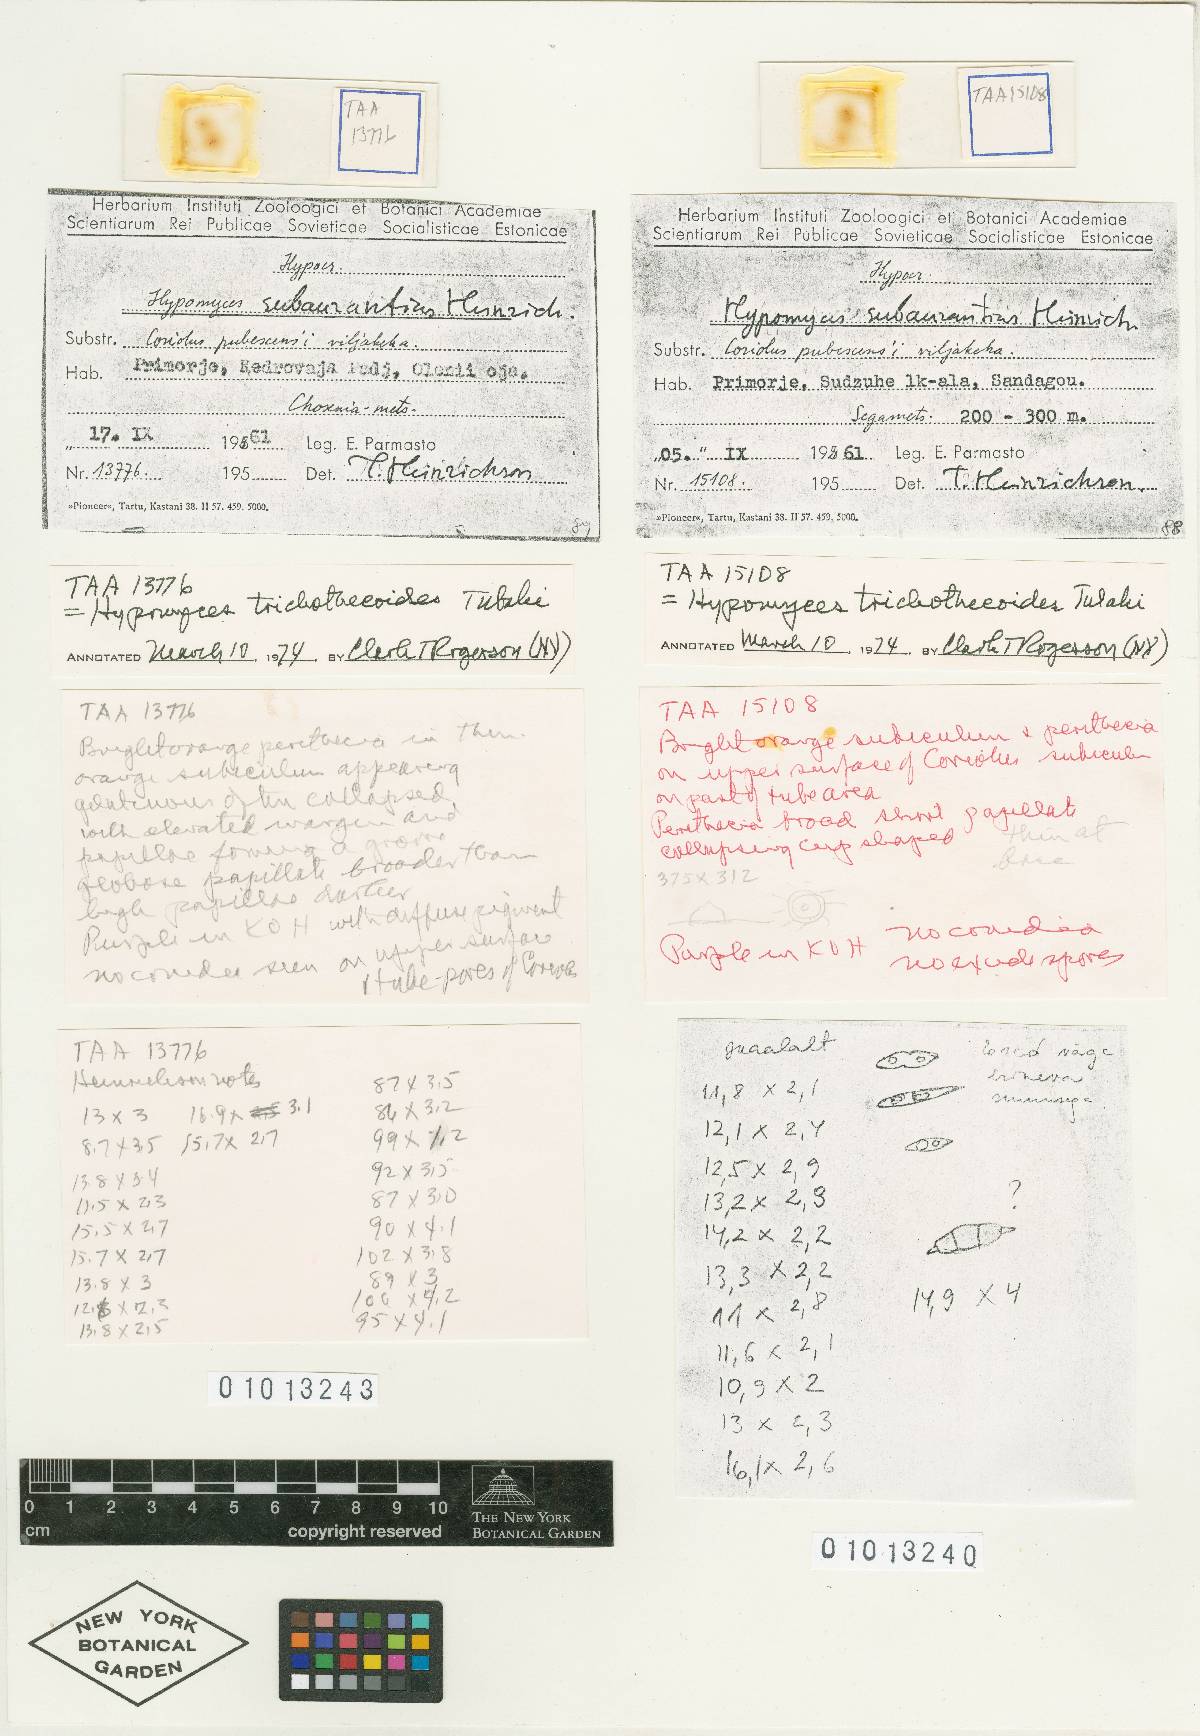 TAA
13776
Herbarium Instituti Zooloogici et Botanici Academiae
Scientiarum Rei Publicae Sovieticae Socialisticae Estonicae
Hypocr.
Hypomyces subaurantius Heinrich.
Substr. Coriolus pubescens'i viljakeha.
Hab. Primorje, Kedrovaja Padj, Olenii oja.
Chosenia-mets.
„ 17. IX 195 61 Leg. E. Parmasto
Nr. 13776. 195 Det. T. Heinrichson
»Pioneer«, Tartu, Kastani 38. II 57. 459. 5000.
87
TAA 13776
= Hypomyces trichothecoides Tubaki
ANNOTATED March 10 1974 BY Clark T Rogerson (NY)
TAA 13776
Bright orange perithecia in thin
orange subiculum appearing
gelatinous often collapsed,
with elevated margin and
papillae forming a groove
globose papillate broader than
high papillae darker
Purple in KOH with diffuse pigment
no conidia seen on upper surface
& tube-pores of Coriolus
TAA 13776
Heinrichson notes
13 x 3 16.9 x 3.1
8.7 x 3.5 15.7 x 2.7
13.8 x 3.4
11.5 x 2.3
15.5 x 2.7
15.7 x 2.7
13.8 x 3
12.6 x 2.3
13.8 x 2.5
87 x 3.5
86 x 3.2
99 x 4.2
92 x 3.5
87 x 3.0
90 x 4.1
102 x 3.8
89 x 3
100 x 4.2
95 x 4.1
01013243
0 1 2 3 4 5 6 7 8 9 10
cm copyright reserved
THE NEW YORK
BOTANICAL GARDEN
NEW YORK
BOTANICAL
GARDEN
TAA15108
Herbarium Instituti Zooloogici et Botanici Academiae
Scientiarum Rei Publicae Sovieticae Socialisticae Estonicae
Hypocr.
Hypomyces subaurantius Heinrich.
Substr. Coriolus pubescens'i viljakeha.
Hab. Primorje, Sudzuhe lk-ala, Sandagou.
Segamets. 200 - 300 m.
„05." IX 195 61 Leg. E. Parmasto
Nr. 15108. 195 Det. T. Heinrichson.
»Pioneer«, Tartu, Kastani 38. II 57. 459. 5000.
88
TAA 15108
= Hypomyces trichothecoides Tubaki
ANNOTATED March 10 1974 BY Clark T Rogerson (NY)
TAA 15108
Bright orange subiculum & perithecia
on upper surface of Coriolus subiculum
on part of tube area
Perithecia broad short papillate
collapsing cup shaped thin at
base
375 x 312
Purple in KOH no conidia
no exuded spores
11,8 x 2,1
12,1 x 2,4
12,5 x 2,9
13,2 x 2,9
14,2 x 2,2
13,3 x 2,2
11 x 2,8
11,6 x 2,1
10,9 x 2
13 x 2,3
16,1 x 2,6
?
14,9 x 4
01013240